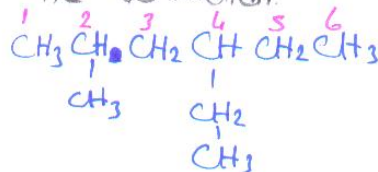 1 2 3 4 5 6
CH3 CH CH2 CH CH2 CH3
CH3 CH2
CH3